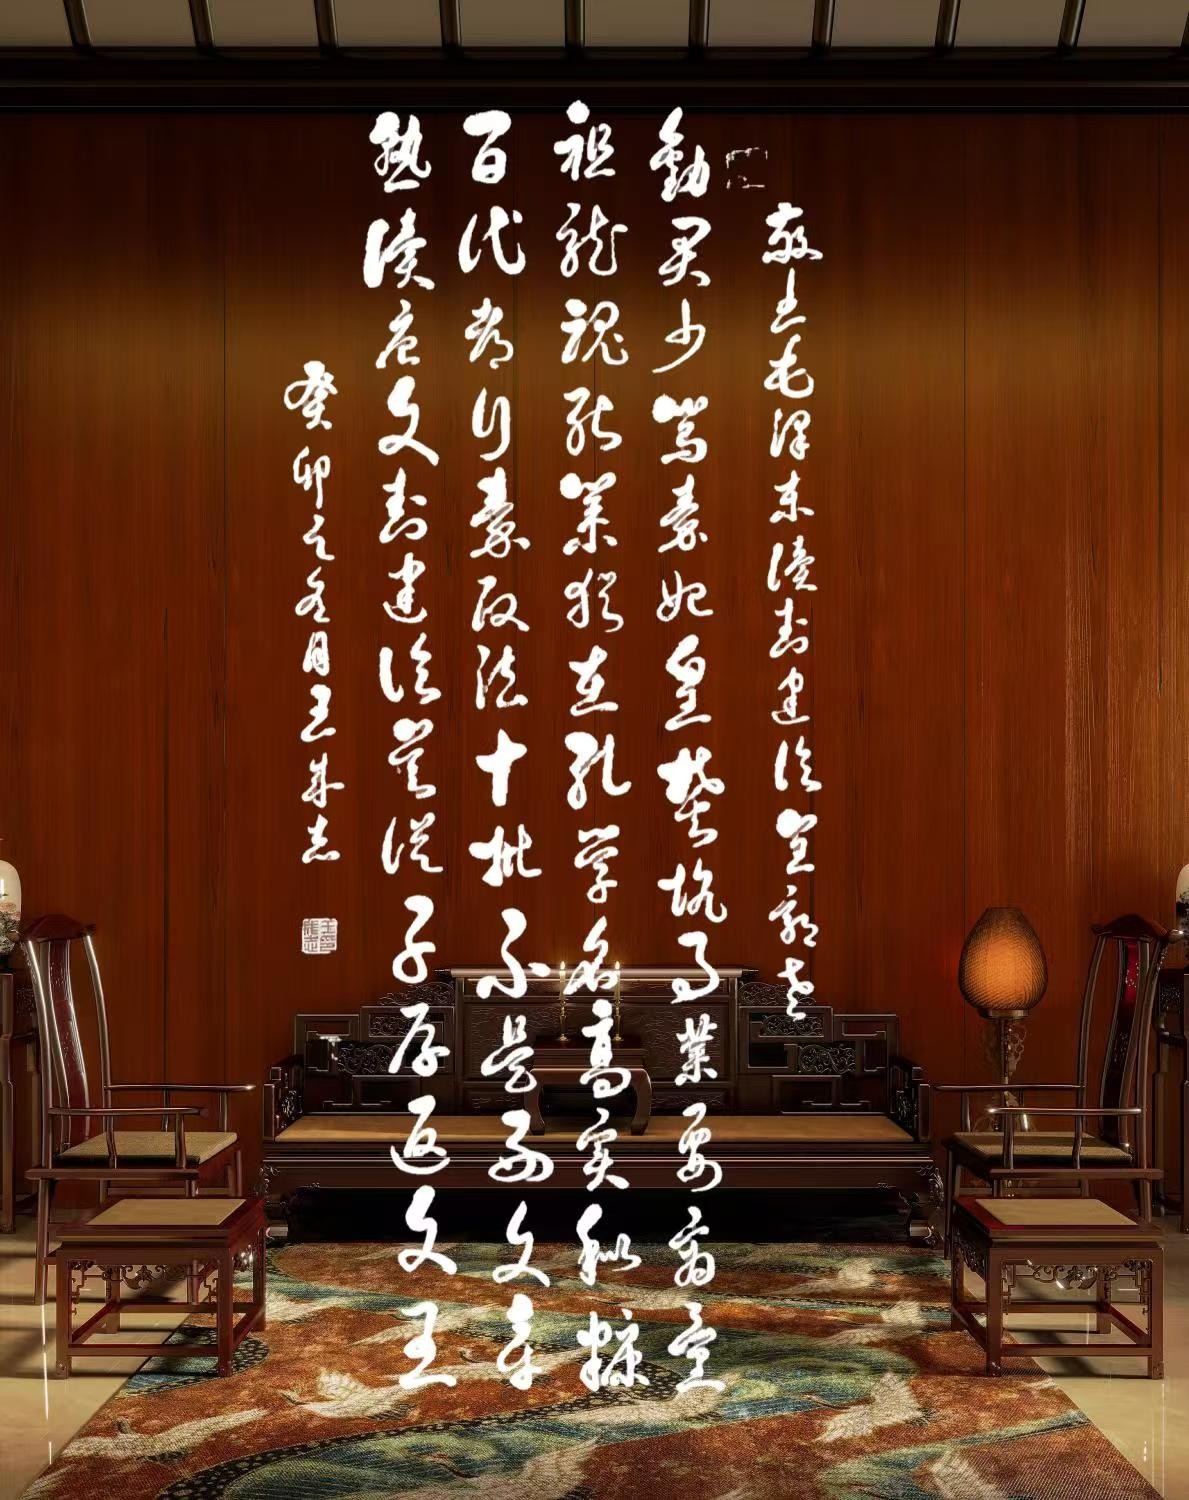 敬书毛澤东讀封建论呈郭老
勸君少骂秦始皇焚坑事業要商量
祖龙魂死秦犹在孔学名高实秕糠
百代都行秦政法十批不是好文章
熟讀唐文封建论莫従子厚返文王
癸卯之冬月王成志